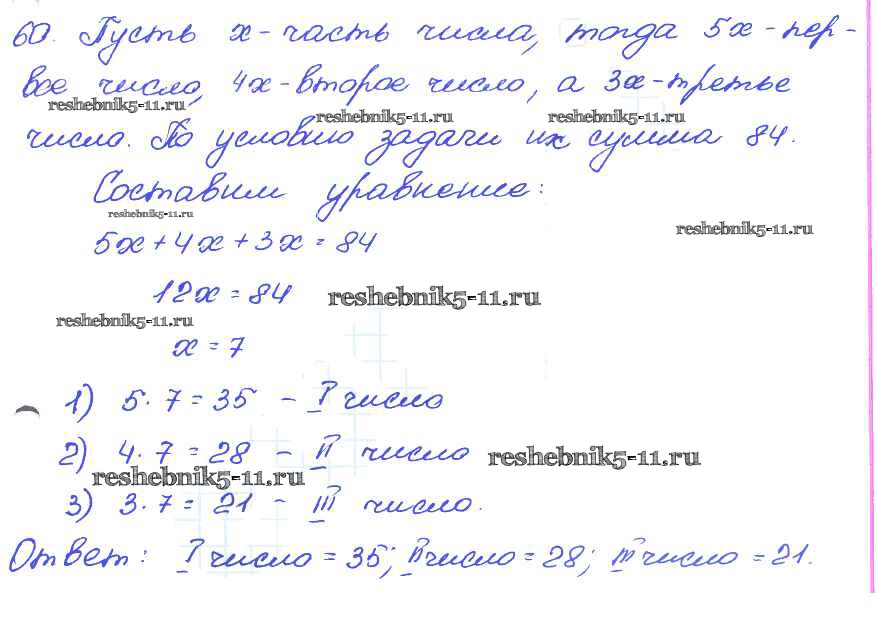 60. Пусть х - часть числа, тогда 5х - пер-
вое число, 4х - второе число, а 3х - третье
reshebnik5-11.ru
reshebnik5-11.ru reshebnik5-11.ru
число. По условию задачи их сумма 84.
Составим уравнение:
reshebnik5-11.ru
reshebnik5-11.ru
5х + 4х + 3х = 84
12х = 84
reshebnik5-11.ru
reshebnik5-11.ru
х = 7
1) 5 · 7 = 35 - I число
2) 4 · 7 = 28 - II число
reshebnik5-11.ru
reshebnik5-11.ru
3) 3 · 7 = 21 - III число.
Ответ: I число = 35; II число = 28; III число = 21.